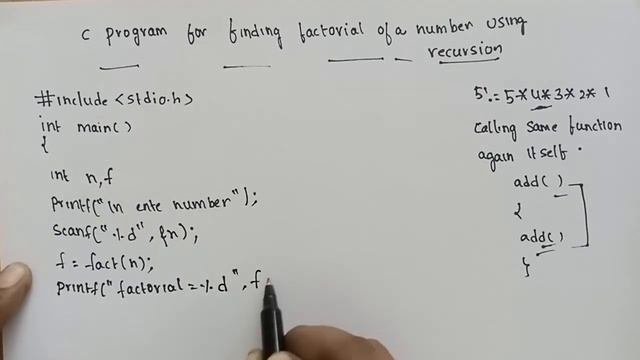 C program for finding factorial of a number using
recursion
#include <stdio.h>
int main()
{
int n,f
printf("\n ente number");
scanf("%d", &n);
f = fact(n);
printf("factorial = %d", f
5! = 5*4*3*2*1
calling same function
again itself.
add()
{
add()
}